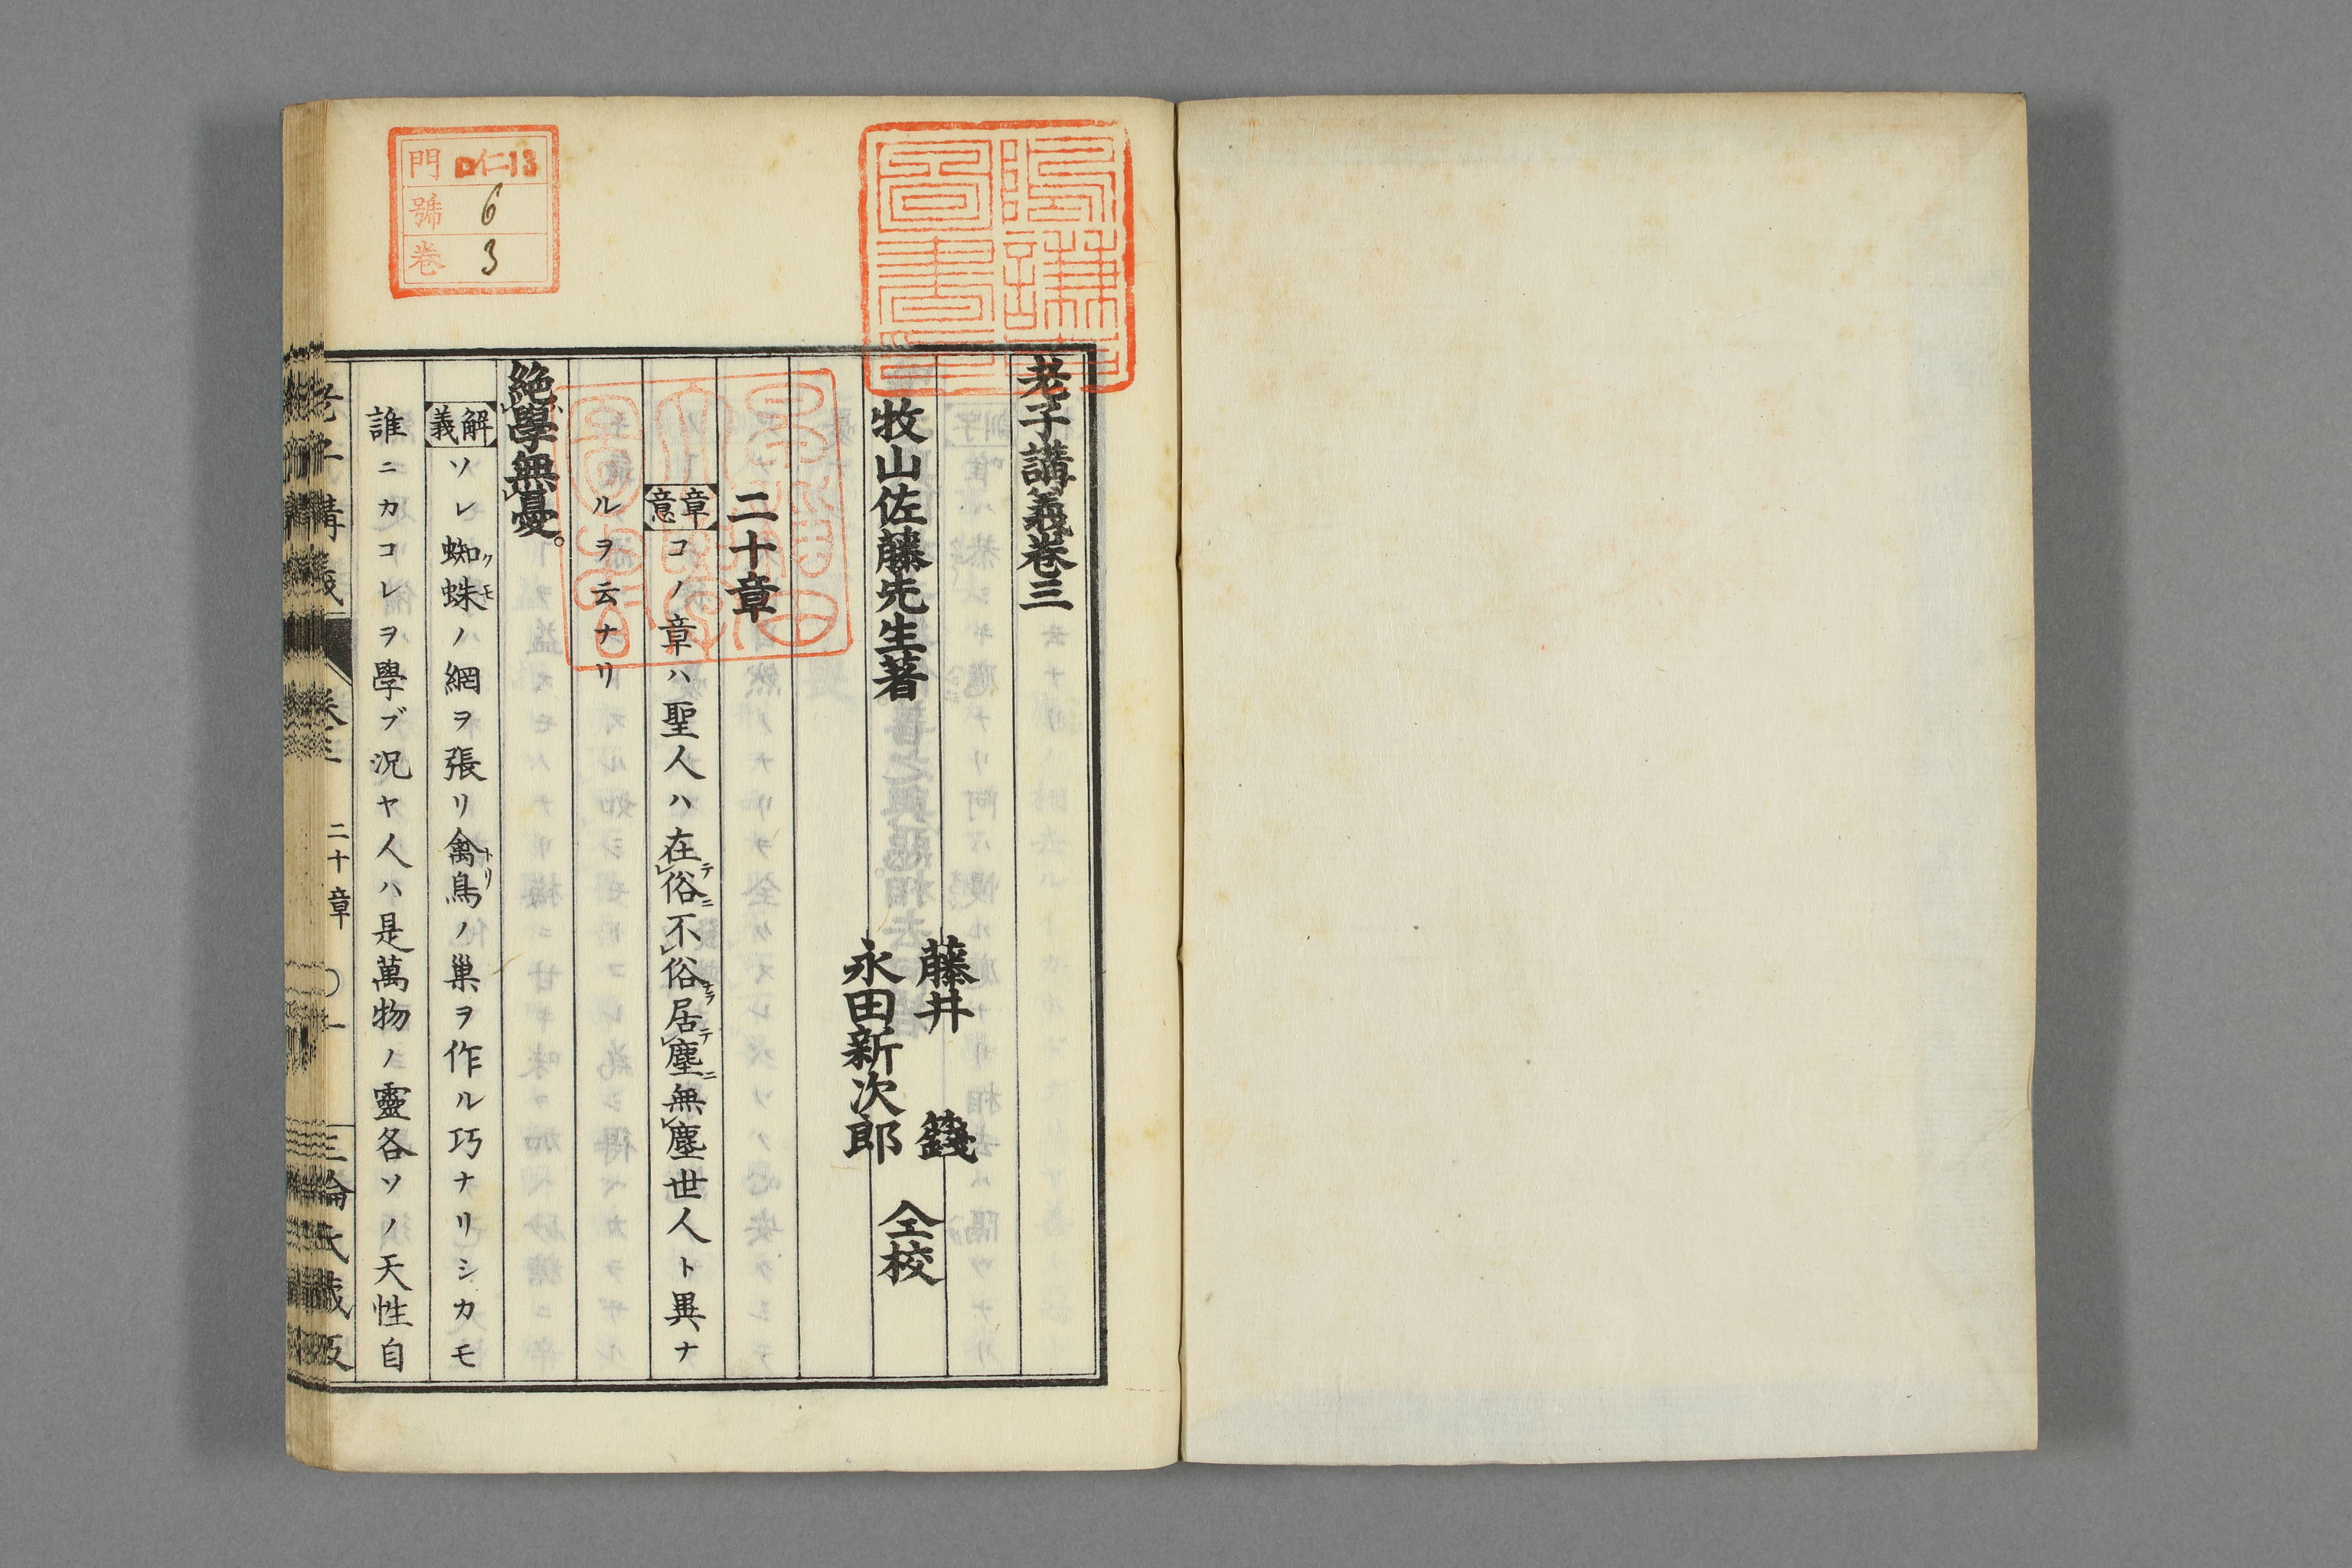 老子講義卷三
牧山佐藤先生著
藤井 籛
永田新次郎
仝校
二十章
章意 コノ章ハ聖人ハ在俗不俗居塵無塵世人ト異ナ
ルヲ云ナリ
絶學無憂。
解義 ソレ蜘蛛ノ網ヲ張リ禽鳥ノ巣ヲ作ル巧ナリシカモ
誰ニカコレヲ學ブ況ヤ人ハ是萬物ノ靈各ソノ天性自
老子講義 卷三 二十章 〇一
門 ロ仁13
號 6
卷 3